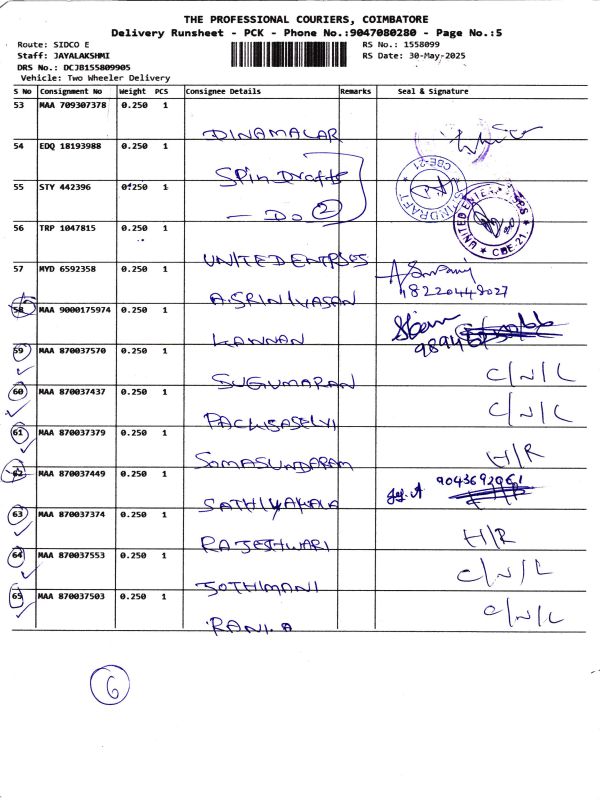 THE PROFESSIONAL COURIERS, COIMBATORE
Delivery Runsheet - PCK - Phone No.:9047080280 - Page No.:5
Route: SIDCO E
RS No.: 1558099
Staff: JAYALAKSHMI
RS Date: 30-May-2025
DRS No.: DCJB155809905
Vehicle: Two Wheeler Delivery
S No Consignment No Weight PCS Consignee Details Remarks Seal & Signature
53 MAA 709307378 0.250 1
DINAMALAR
54 EDQ 18193988 0.250 1
Spin Drafts
CBE-21
SPINDRAFT
55 STY 442396 0.250 1
- Do 2
56 TRP 1047815 0.250 1
UNITED ENTPSES
UNITED ENTERPRISES
CBE-21.
57 MYD 6592358 0.250 1
A.SRINIVASAN
58 MAA 9000175974 0.250 1
KANNAN
59 MAA 870037570 0.250 1
SUGUMARAN C/N/L
60 MAA 870037437 0.250 1
C/N/L
61 MAA 870037379 0.250 1
SOMASUNDARAM H/R
62 MAA 870037449 0.250 1
SATHIYAKALA
63 MAA 870037374 0.250 1
RAJESHWARI H/R
64 MAA 870037553 0.250 1
JOTHIMANI C/N/L
65 MAA 870037503 0.250 1
RANI.A C/N/L
6